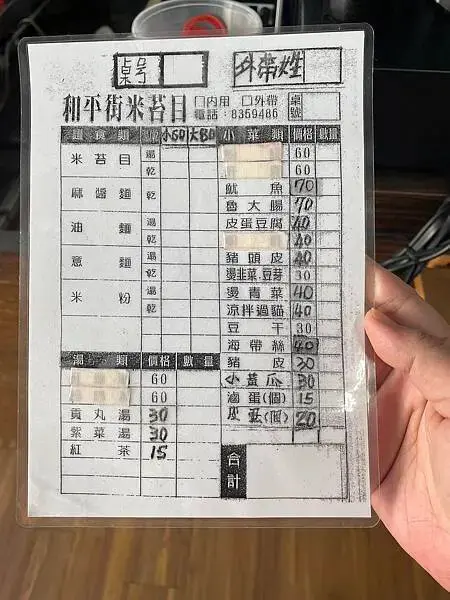 桌号
外帶姓
和平街米苔目 □內用 □外帶 桌號
電話：8359486
麵食類 小60 大80
米苔目 湯 乾
麻醬麵 湯 乾
油麵 湯 乾
意麵 湯 乾
米粉 湯 乾
湯類 價格 數量
60
60
貢丸湯 30
紫菜湯 30
紅茶 15
小菜類 價格 數量
60
60
魷魚 70
魯大腸 70
皮蛋豆腐 40
40
豬頭皮 40
燙韭菜.豆芽 30
燙青菜 40
涼拌過貓 40
豆干 30
海帶絲 40
豬皮 30
小黃瓜 30
滷蛋(個) 15
皮蛋(個) 20
合計